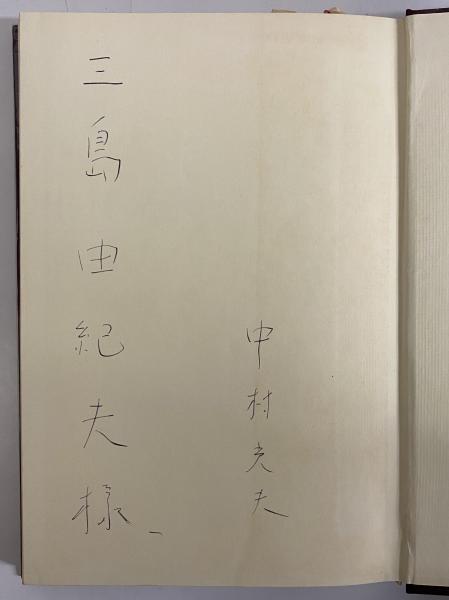 中村光夫
三島由紀夫様